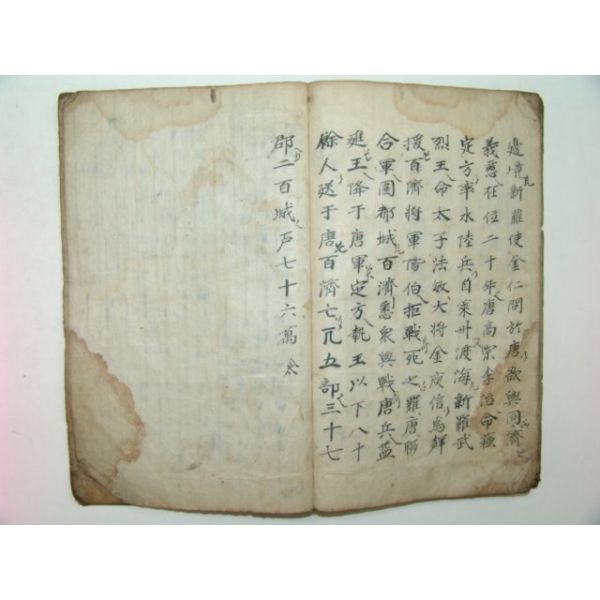 邊境新羅使金仁問於唐欲與同濟
義慈在位二十年唐高宗李治命
定方率水陸兵自萊州渡海新羅武
烈王命太子法敏大将金庾信爲
援百濟将軍伯拒戰死之羅唐
合軍圍都城百濟悉衆與戰唐兵益
進王降于唐軍定方執王以下八十
餘人送于唐百濟七凡五部三十七
郡二百城戶七十六萬